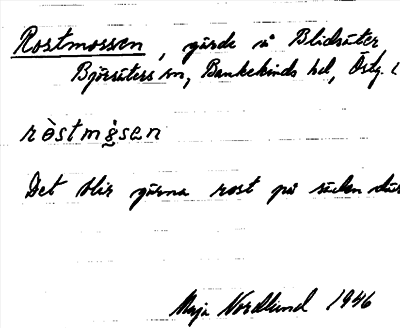 Rostmossen, gärde i Blidsäter
Björsäters sn, Bankekinds hd, Östg. l
ròstmɷ̀sen
Det blir gärna rost på säden där
Maja Nordlund 1946